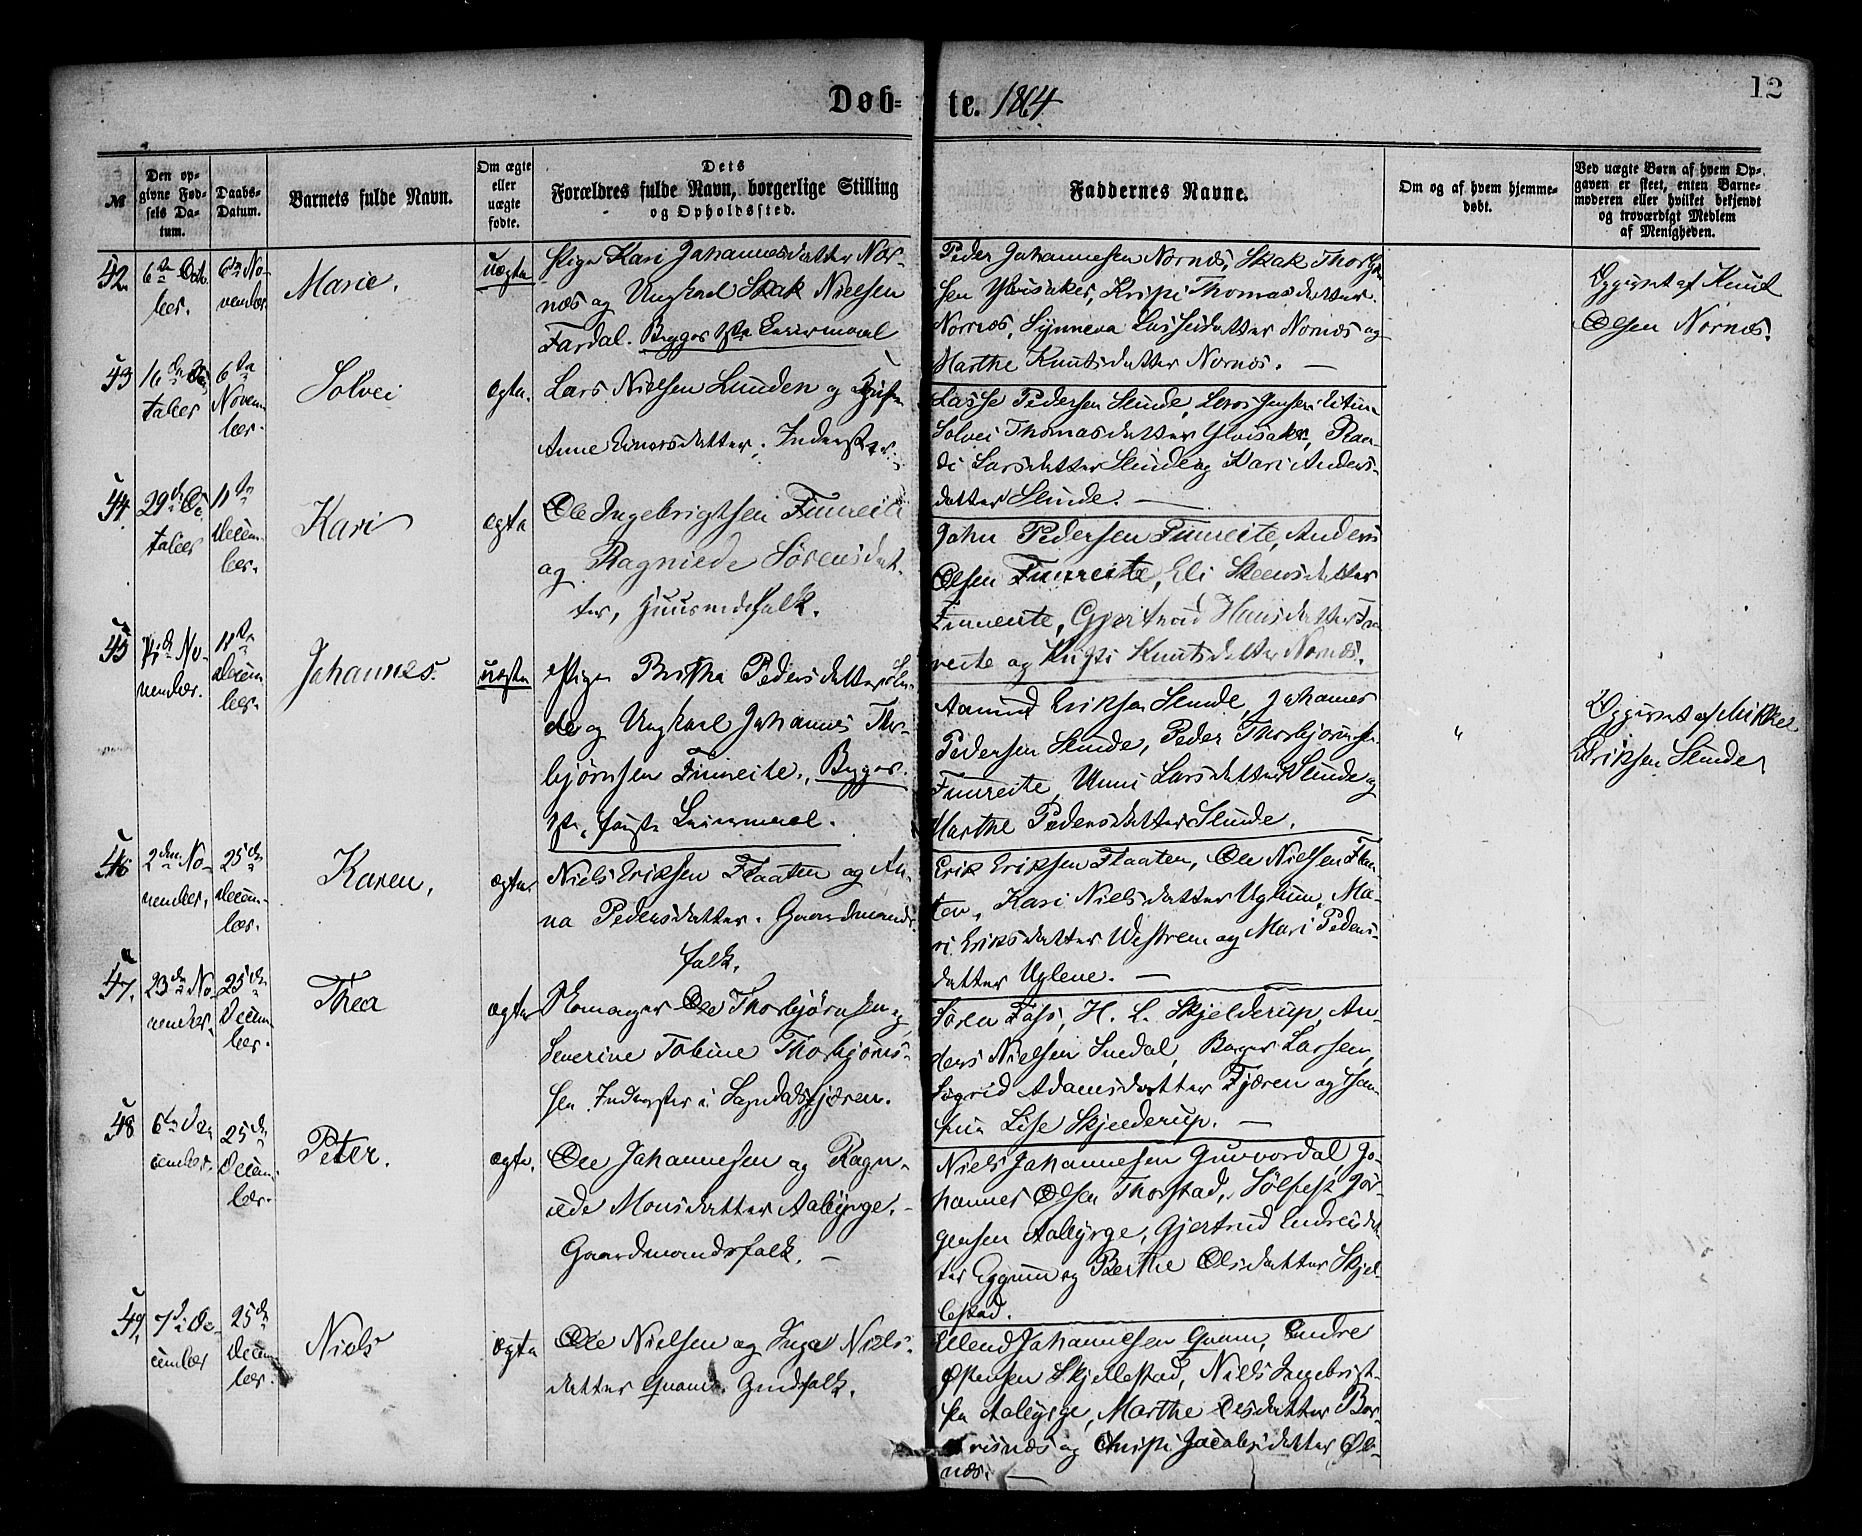 Døb-te. 1864
12
№
Den op-
givne Fød-
sels Da-
tum.
Daabs-
Datum.
Barnets fulde Navn.
Om ægte
eller
uægte
fødte.
Dets
Forældres fulde Navn, borgerlige Stilling
og Opholdssted.
Faddernes Navne.
Om og af hvem hjemme-
døbt.
Ved uægte Børn af hvem Op-
gaven er skeet, enten Barne-
moderen eller hvilket bekjendt
og troværdigt Medlem
af Menigheden.
42
6te Octo-
ber.
6te No-
vember
Marie.
uægte
Pige Kari Johannesdatter Nor-
næs og Ungkarl Skak Nielsen
Fardal. Begges 1ste Leiermaal
Peder Johannesen Nornæs, Skak
sen Ylvisaker, Kristi Thomasdatter
Nornæs, Synneva Lassesdatter Nornæs og
Marthe Knutsdatter Nornæs. —
Opgivet af Knut
Olsen Nornæs.
43
16de Oc-
tober
6te
Novem-
ber.
Solvei
ægte.
Lars Nielsen Lunden og Hustru
Anne Einarsdatter, Inderster.
Lasse Pedersen Slinde, Lars Jensen
Solvei Thomasdatter Ylvisaker, Ran-
di Larsdatter Slinde og Kari Anders-
datter Slinde. —
44
29de Oc-
tober
11te
Decem-
ber.
Kari
ægte
Ole Ingebrigtsen Fimreite
og Ragnilde Sørensdat-
ter, Huusmandsfolk.
John Pedersen Fimreite, Anders
Olsen Fimreite, Eli
Fimreite, Gjertrud Hansdatter Fim-
reite og Kristi Knutsdatter Nornæs.
45
No-
vember.
11te
Decem-
ber.
Johannes.
uægte
Pige Britha Pedersdatter Slin-
de og Ungkarl Johannes Thor-
bjørnsen Fimreite, Begges
1ste Leiermaal.
Aamund Eriksen Slinde, Johannes
Pedersen Slinde, Peder Thorbjørnsen
Fimreite, Unni Larsdatter Slinde og
Marthe Pedersdatter Slinde.
"
Opgivet af Mikkel
Eriksen Slinde
46
2den No-
vember,
25de
Decem-
ber.
Karen,
ægte
Niels Eriksen Flaaten og An-
na Pedersdatter. Gaardmands-
folk.
Erik Eriksen Flaaten, Ole Nielsen Flaa-
ten, Kari Nielsdatter Uglum, Ma-
ri Eriksdatter Westrem og Mari Peders-
datter Uglene. —
47.
23de No-
vember.
25de
Decem-
ber.
Thea
ægte
Skomager Ole Thorbjørnsen og
Severine Tobine Thorbjørn-
sen. Inderster i Sogndalsfjæren.
Søren Foss, H. L. Skjelderup, An-
ders Nielsen Indal, Børger Larsen,
Sigrid Adamsdatter Fjæren og Tom-
Lise Skjelderup. —
48
6te De-
cember.
25de
Decem-
ber.
Peter.
ægte.
Ole Johannesen og Ragn-
ilde Monsdatter Aabyrge. -
Gaardmandsfolk. —
Niels Johannesen Gurvordal, Jo-
hannes Olsen Thorstad, Sølfest Jør-
gensen Aabyrge, Gjertrud Endresdat-
ter Eggum og Berthe Olsdatter Skjel-
lestad.
49,
7de De-
cember
25de
Decem-
ber.
Niels
ægte
Ole Nielsen og Inga Niels-
datter Qvam. Grdsfolk.
Ellend Johannesen Qvam, Endre
Østensen Skjellestad, Niels Ingebrigt-
sen Aabyrge, Marthe Olsdatter
og Christi Jacobsdatter Øl-
næs. —